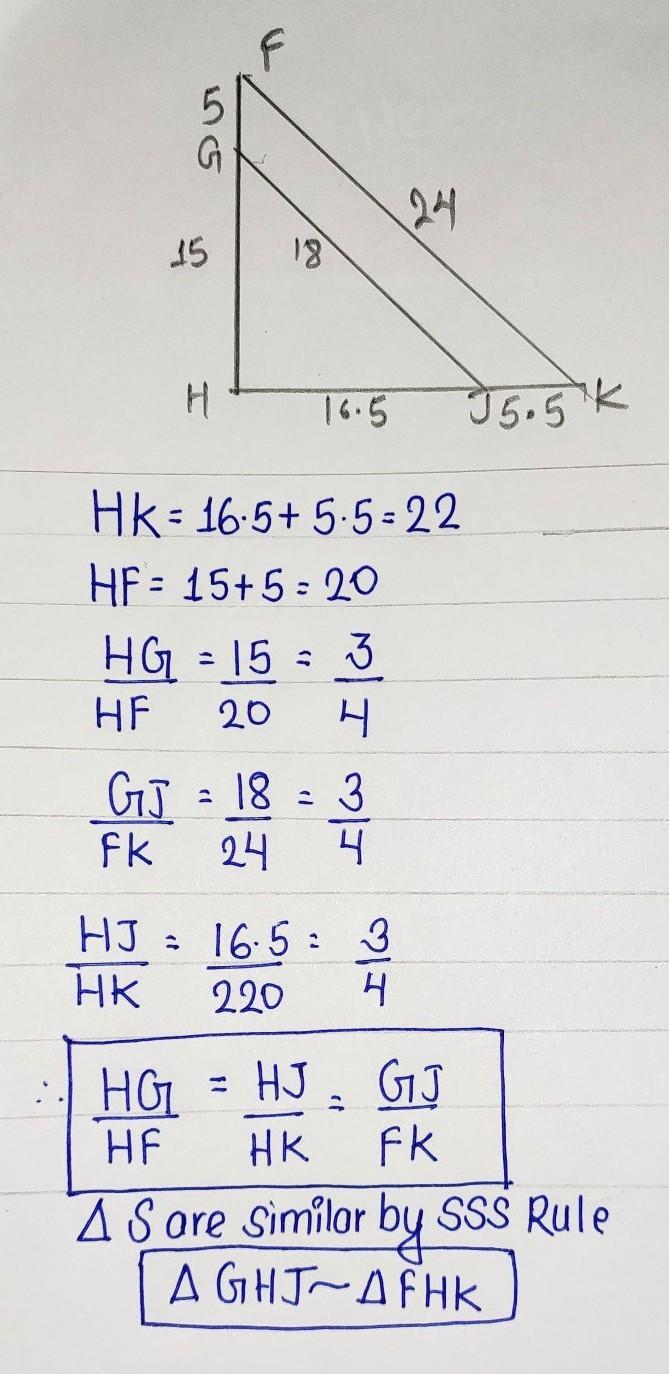 F
5
G
24
15
18
H
16.5
J 5.5
K
Hk = 16.5 + 5.5 = 22
HF = 15 + 5 = 20
HG/HF = 15/20 = 3/4
GJ/FK = 18/24 = 3/4
HJ/HK = 16.5/220 = 3/4
∴ HG/HF = HJ/HK = GJ/FK
Δ S are similar by SSS Rule
Δ GHJ ~ Δ FHK